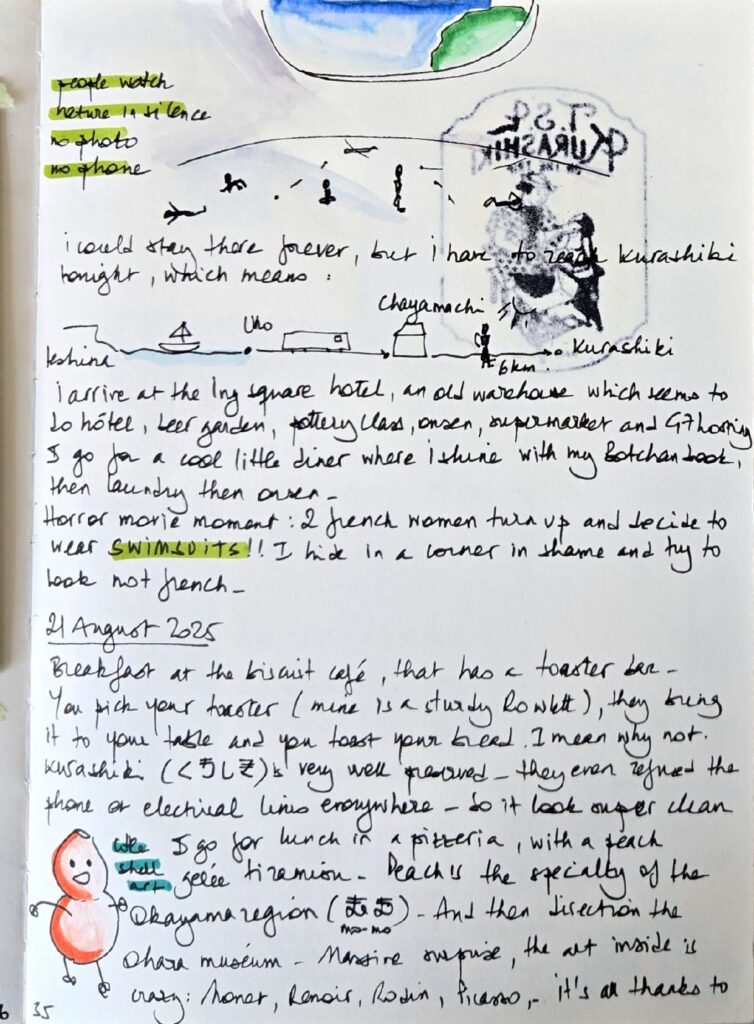 people watch
nature in silence
no photo
no phone
T.SQ
KURASHIKI
i could stay there forever, but i have to reach Kurashiki
tonight, which means :
Chayamachi
Uno
Teshima
Kurashiki
6km
i arrive at the Ivy square hotel, an old warehouse which seems to
do hôtel, beer garden, pottery class, onsen, supermarket and G7 hosting
I go for a cool little diner where i shine with my Botchan book,
then laundry then onsen _
Horror movie moment : 2 french women turn up and decide to
wear SWIMSUITS !! I hide in a corner in shame and try to
look not french _
21 August 2025
Breakfast at the biscuit café, that has a toaster bar _
You pick your toaster (mine is a sturdy Rowlett), they bring
it to your table and you toast your bread. I mean why not.
Kurashiki (くらしき) is very well preserved _ they even refused the
phone or electrical lines everywhere _ so it look super clean
I go for lunch in a pizzeria, with a peach
gelée tiramisu _ Peach is the specialty of the
shell
art
Okayama region (もも) _ And then direction the
mo-mo
Ohara muséum _ Massive surprise, the art inside is
crazy : Monet, Renoir, Rodin, Picasso, _ it's all thanks to
35